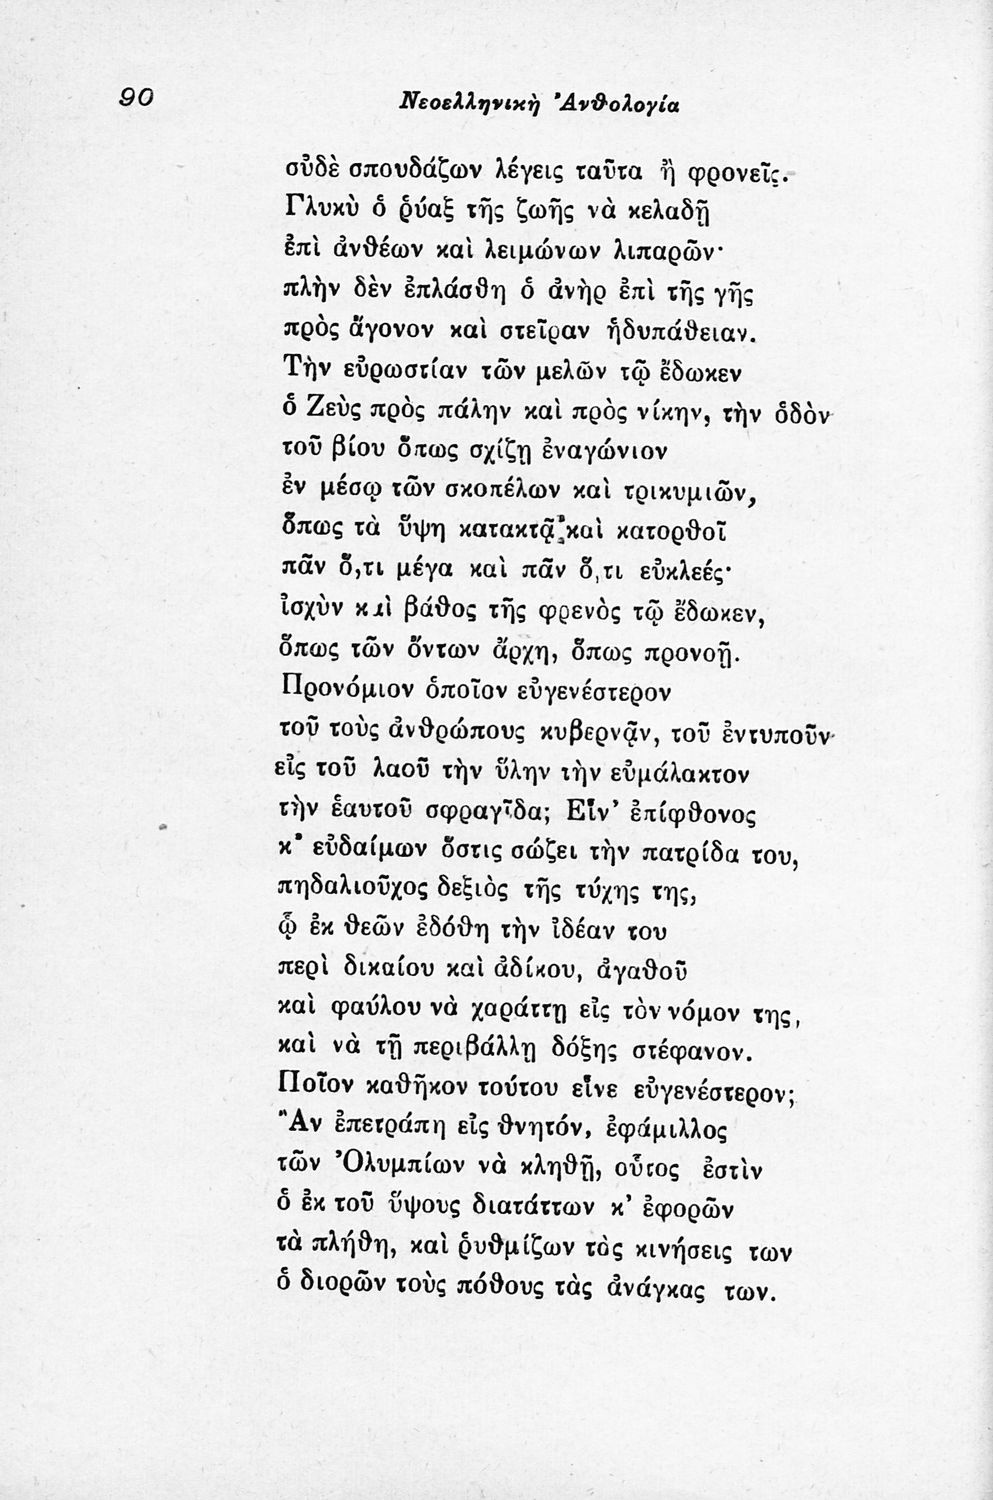 90
Νεοελληνικὴ Ἀνθολογία
οὐδὲ σπουδάζων λέγεις ταῦτα ἢ φρονεῖς.
Γλυκὺ ὁ ῥύαξ τῆς ζωῆς νὰ κελαδῇ
ἐπὶ ἀνθέων καὶ λειμώνων λιπαρῶν·
πλὴν δὲν ἐπλάσθη ὁ ἀνὴρ ἐπὶ τῆς γῆς
πρὸς ἄγονον καὶ στεῖραν ἡδυπάθειαν.
Τὴν εὐρωστίαν τῶν μελῶν τῷ ἔδωκεν
ὁ Ζεὺς πρὸς πάλην καὶ πρὸς νίκην, τὴν ὁδὸν
τοῦ βίου ὅπως σχίζῃ ἐναγώνιον
ἐν μέσῳ τῶν σκοπέλων καὶ τρικυμιῶν,
ὅπως τὰ ὕψη κατακτᾷ καὶ κατορθοῖ
πᾶν ὅ,τι μέγα καὶ πᾶν ὅ,τι εὐκλεές·
ἰσχὺν καὶ βάθος τῆς φρενὸς τῷ ἔδωκεν,
ὅπως τῶν ὄντων ἄρχη, ὅπως προνοῇ.
Προνόμιον ὁποῖον εὐγενέστερον
τοῦ τοὺς ἀνθρώπους κυβερνᾷν, τοῦ ἐντυποῦν
εἰς τοῦ λαοῦ τὴν ὕλην τὴν εὐμάλακτον
τὴν ἑαυτοῦ σφραγῖδα; Εἶν' ἐπίφθονος
κ' εὐδαίμων ὅστις σώζει τὴν πατρίδα του,
πηδαλιοῦχος δεξιὸς τῆς τύχης της,
ᾧ ἐκ θεῶν ἐδόθη τὴν ἰδέαν του
περὶ δικαίου καὶ ἀδίκου, ἀγαθοῦ
καὶ φαύλου νὰ χαράττῃ εἰς τὸν νόμον της,
καὶ νὰ τῇ περιβάλλῃ δόξης στέφανον.
Ποῖον καθῆκον τούτου εἶνε εὐγενέστερον;
Ἂν ἐπετράπη εἰς θνητόν, ἐφάμιλλος
τῶν Ὀλυμπίων νὰ κληθῇ, οὗτος ἐστὶν
ὁ ἐκ τοῦ ὕψους διατάττων κ' ἐφορῶν
τὰ πλήθη, καὶ ῥυθμίζων τὰς κινήσεις των
ὁ διορῶν τοὺς πόθους τὰς ἀνάγκας των.